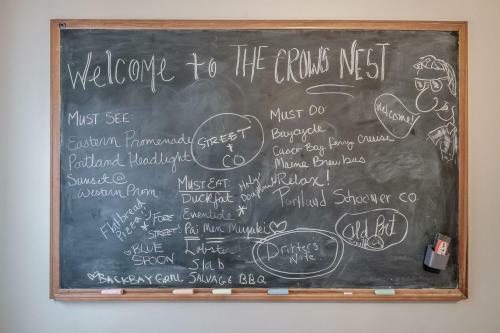 Welcome to THE CROWS NEST
Welcome!
MUST SEE:
Eastern Promenade
Portland Headlight
Sunset @
Western Prom
STREET
+
CO
MUST DO
Baycycle
Casco Bay Ferry Cruise
Maine Brewbus
Relax!
Portland Schooner Co.
MUST EAT:
Duckfat
Eventide *
Pai Men Miyake
Lobster
Slab
SALVAGE BBQ
Holy
Doughnut
Flatbread
Pizza
* FORE
STREET!
BLUE
SPOON
BACKBAY GRILL
Drifter's
Wife
Old Port